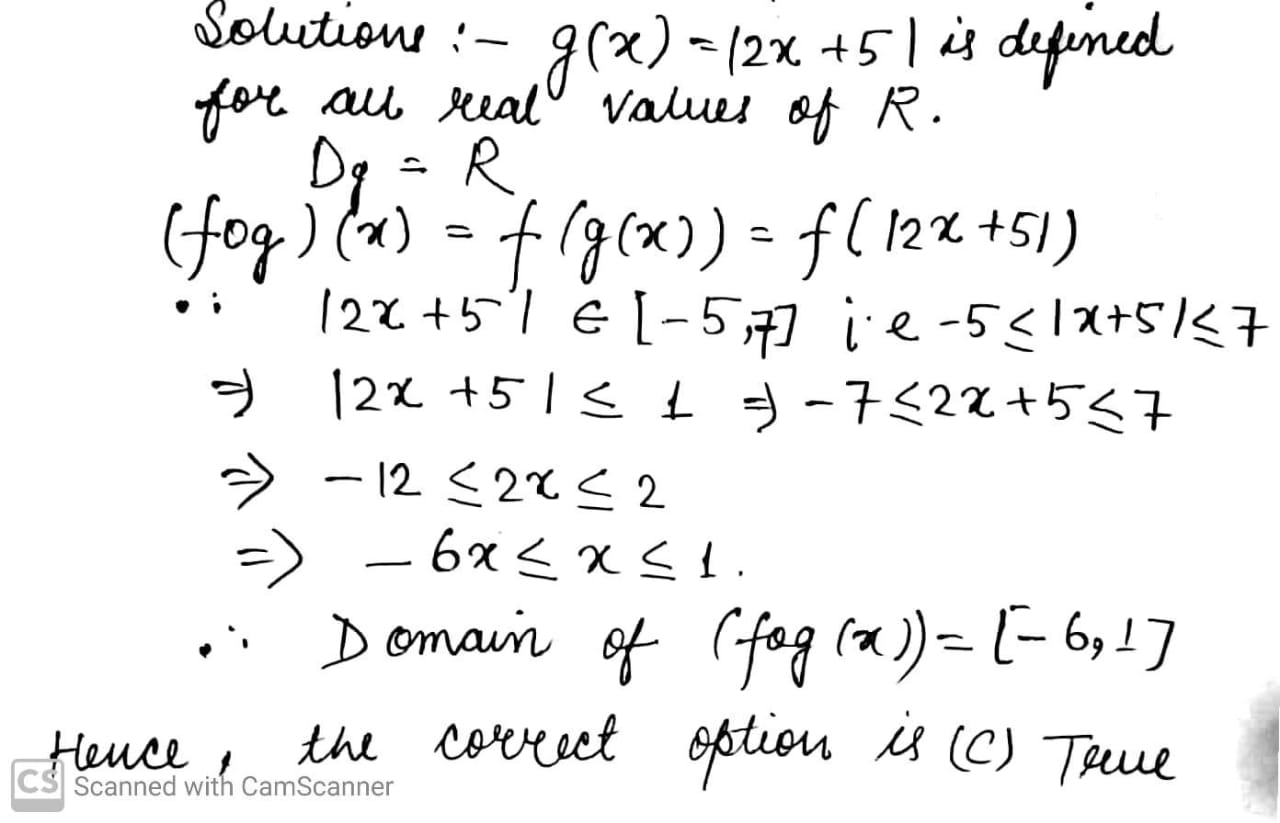 Solutions :- g(x) = |2x + 5| is defined
for all real values of R.
Dg = R
(fog)(x) = f(g(x)) = f(|2x + 5|)
∴ |2x + 5| ∈ [-5,7] i.e -5 ≤ |x+5| ≤ 7
⇒ |2x + 5| ≤ 1 ⇒ -7 ≤ 2x + 5 ≤ 7
⇒ -12 ≤ 2x ≤ 2
⇒ -6x ≤ x ≤ 1.
∴ Domain of (fog(x)) = [-6, 1]
Hence, the correct option is (C) True
CS Scanned with CamScanner